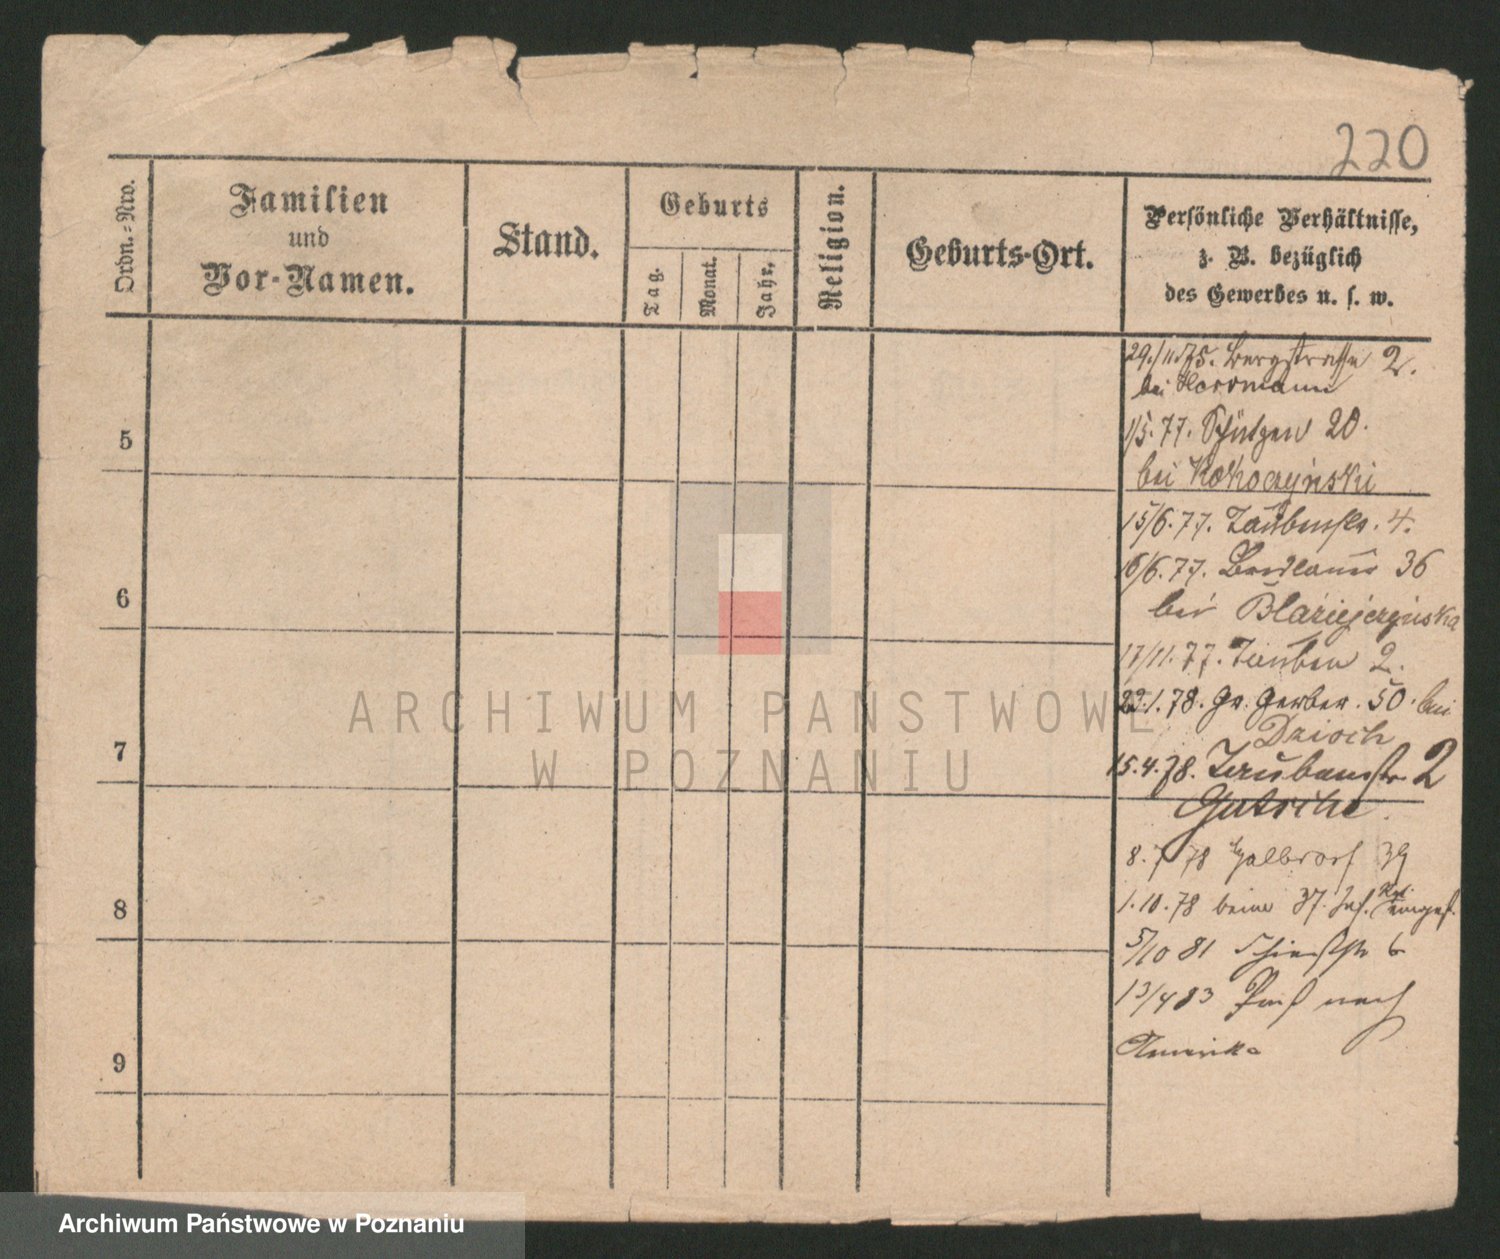 220
Ordn.=Nro.
Familien
und
Vor-Namen.
Stand.
Geburts
Tag.
Monat.
Jahr.
Religion.
Geburts-Ort.
Persönliche Verhältnisse,
z. B. bezüglich
des Gewerbes u. s. w.
29./11.75. Bergstrasse 2.
bei Herrmann
1/5.77. Schützen 20.
5
bei Kokoczyński
15/6.77. Taubenstr. 4.
16/6.77. 36
6
bei
17/11.77. Tauben 2.
22.1.78. Gr. Gerber. 50. bei
Dzioch
7
15.4.78. Taubenstr 2
8.7 78 Halbdorf 39
8
1.10.78 beim 37. Inf. Rgt. eingest.
5/10 81 6
13/4 83 Pass nach
Amerika
9
ARCHIWUM PAŃSTWOWE
W POZNANIU
Archiwum Państwowe w Poznaniu